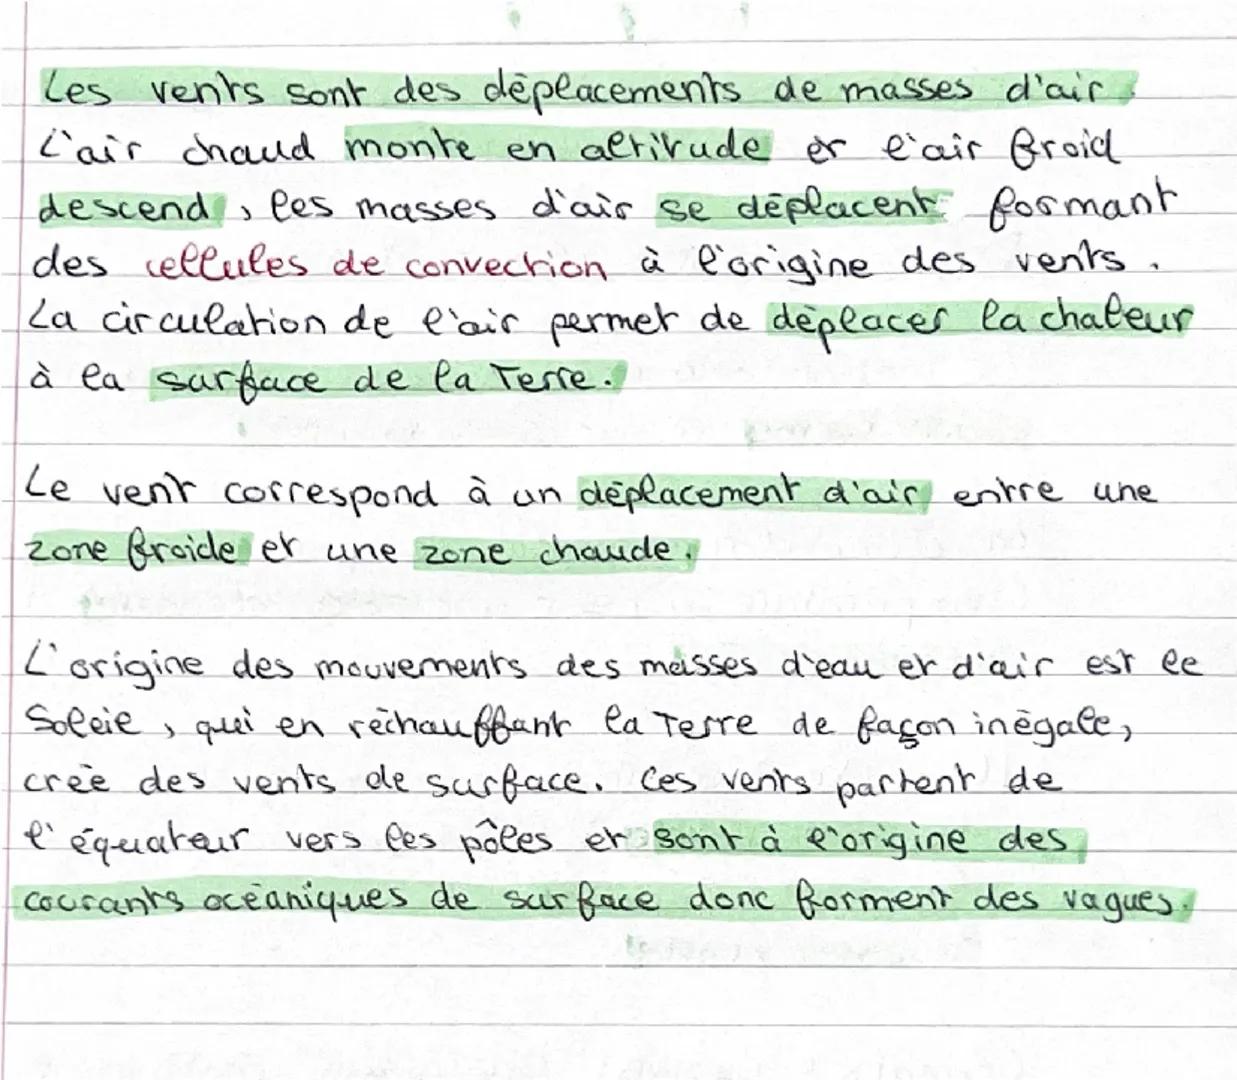 Les vents sont des déplacements de masses d'air.
L'air chaud monte en altitude et l'air froid
descend, les masses d'air se déplacent formant
des cellules de convection à l'origine des vents.
La circulation de l'air permet de déplacer la chaleur
à la surface de la Terre.
Le vent correspond à un déplacement d'air entre une
zone froide et une zone chaude.
L'origine des mouvements des masses d'eau et d'air est le
Soleil, qui en réchauffant la Terre de façon inégale,
crée des vents de surface. Ces vents partent de
l'équateur vers les pôles et sont à l'origine des
courants océaniques de surface donc forment des vagues.